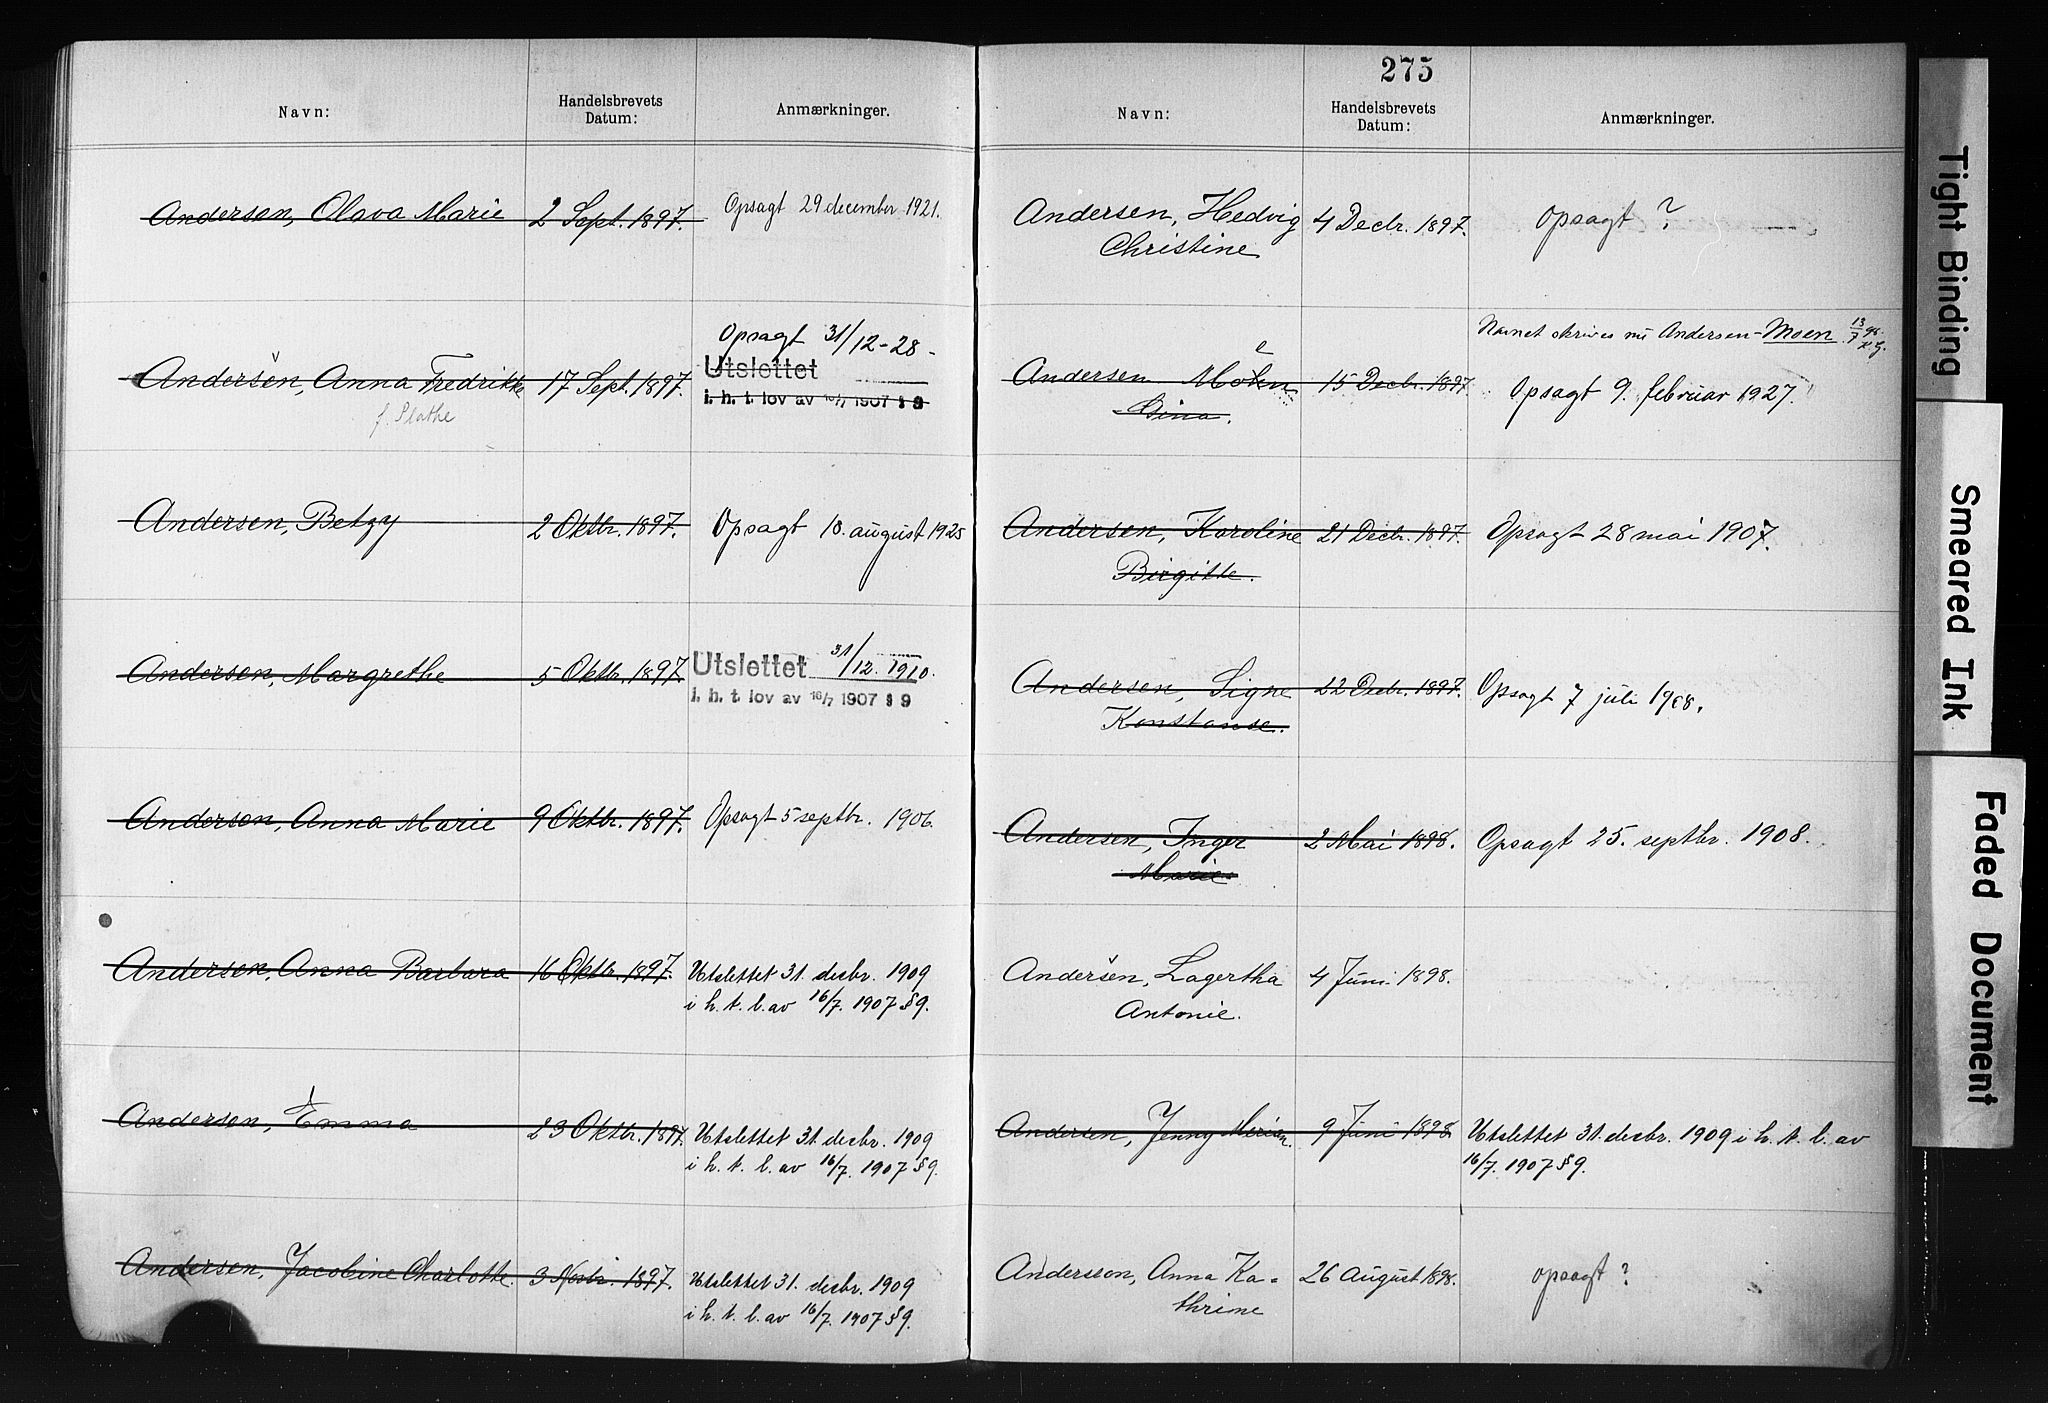 Navn: Handelsbrevets Datum: Anmærkninger.
Andersen, Olava Marie 2 Sept. 1897. Opsagt 29 december 1921.
Opsagt 31/12-28-
Andersen, Anna Fredrikke 17 Sept. 1897. Utslettet
f. Slathe i. h. t. lov av 16/7 1907 § 9
Andersen, Betzy 2 Oktbr. 1897. Opsagt 10. august 1925
Andersen, Margrethe 5 Oktbr. 1897. Utslettet 31/12. 1910.
i. h. t. lov av 16/7 1907 § 9
Andersen, Anna Marie 9 Oktbr. 1897. Opsagt 5 septbr. 1906.
Andersen, Anna Barbara 16 Oktbr. 1897. Utslettet 31. desbr. 1909
i h. t. l. av 16/7. 1907 § 9.
Andersen, Emma 23 Oktbr. 1897. Utslettet 31. desbr. 1909
i h. t. l. av 16/7. 1907 § 9.
Andersen, Jacobine Charlotte. 3 Novbr. 1897. Utslettet 31. desbr. 1909
i h. t. l. av 16/7. 1907 § 9.
275
Navn: Handelsbrevets Datum: Anmærkninger.
Andersen, Hedvig 4 Decbr. 1897. Opsagt ?
Christine
Navnet skrives nu Andersen-Moen. 13/7 98.
Andersen 15 Decbr. 1897. Opsagt 9. februar 1927.
Dina.
Andersen, Karoline 21 Decbr. 1897. Opsagt 28 mai 1907.
Birgitte.
Andersen, Signe 22 Decbr. 1897. Opsagt 7 juli 1908.
Konstanse.
Andersen, Inger 2 Mai 1898. Opsagt 25. septbr. 1908.
Marie.
Andersen, Lagertha 4 Juni 1898.
Antonie.
Andersen, Jenny Mirian. 9 Juni 1898. Utslettet 31. desbr. 1909 i h. t. l. av
16/7. 1907 § 9.
Andersson, Anna Ka- 26 August 1898. opsagt ?
thrine
Tight Binding
Smeared Ink
Faded Document